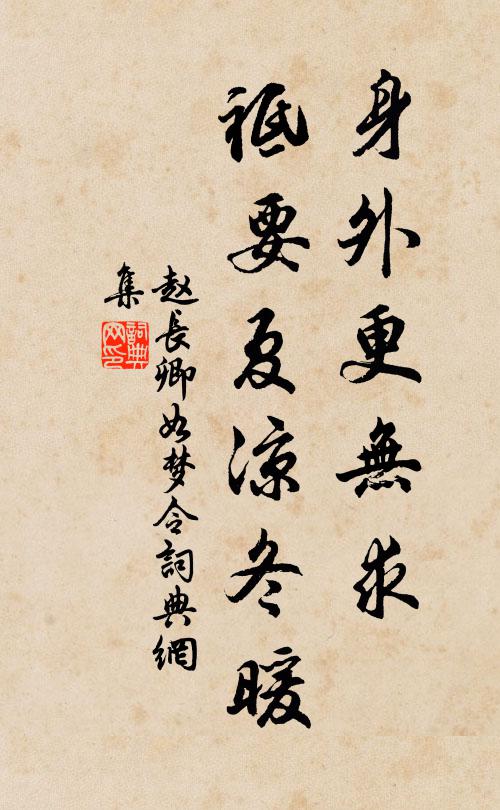 身外更無求
祗要夏凉冬暖
赵長卿如梦令詞典網
集
詞典网印